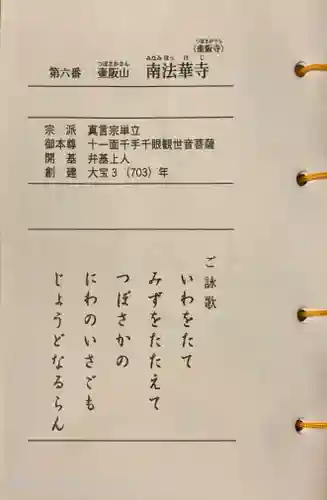 つぼさかでら
（壷阪寺）
つぼさかさん
みなみほっけじ
第六番 壷阪山 南法華寺
宗派 真言宗単立
御本尊 十一面千手千眼観世音菩薩
開基 弁基上人
創建 大宝3（703）年
ご詠歌
いわをたて
みずをたたえて
つぼさかの
にわのいさごも
じょうどなるらん